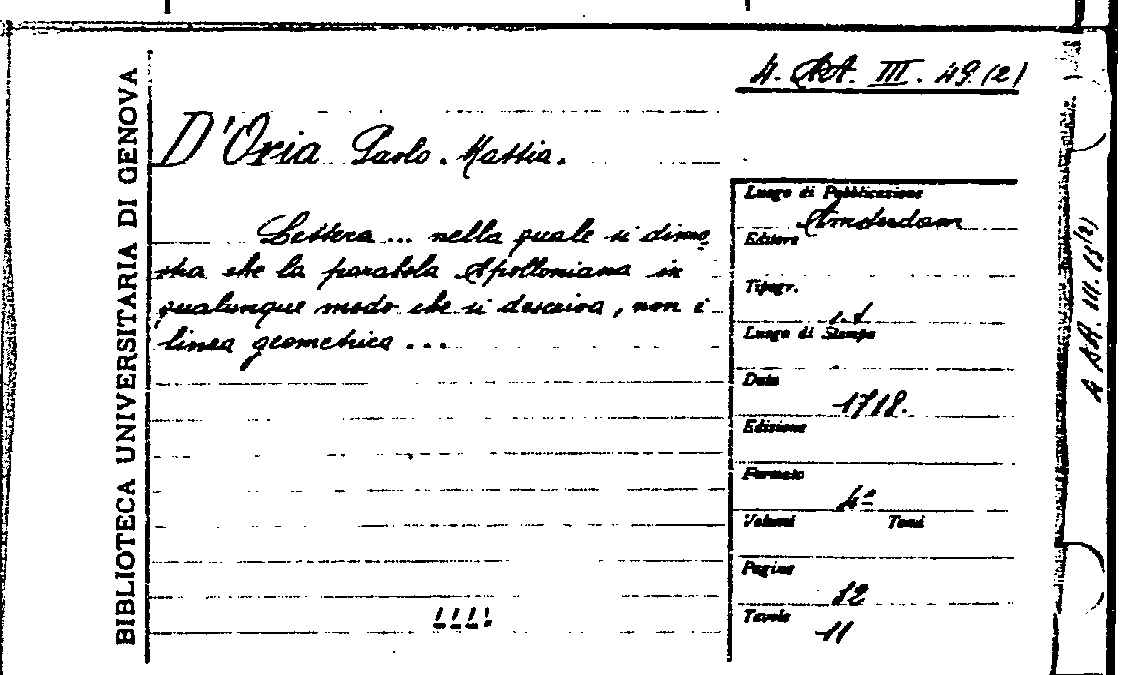 4. AA. III. 49. (2)
BIBLIOTECA UNIVERSITARIA DI GENOVA
D'Oria Paolo. Mattia.
Lettera ... nella quale si dimo
stra che la parabola Apolloniana in
qualunque modo che si descriva, non è
linea geometrica ...
Luogo di Pubblicazione
Amsterdam
Editore
Tipogr.
s.t
Luogo di Stampa
Data
1718.
Edizione
Formato
4º
Volumi Tomi
Pagine
12
Tavole
11